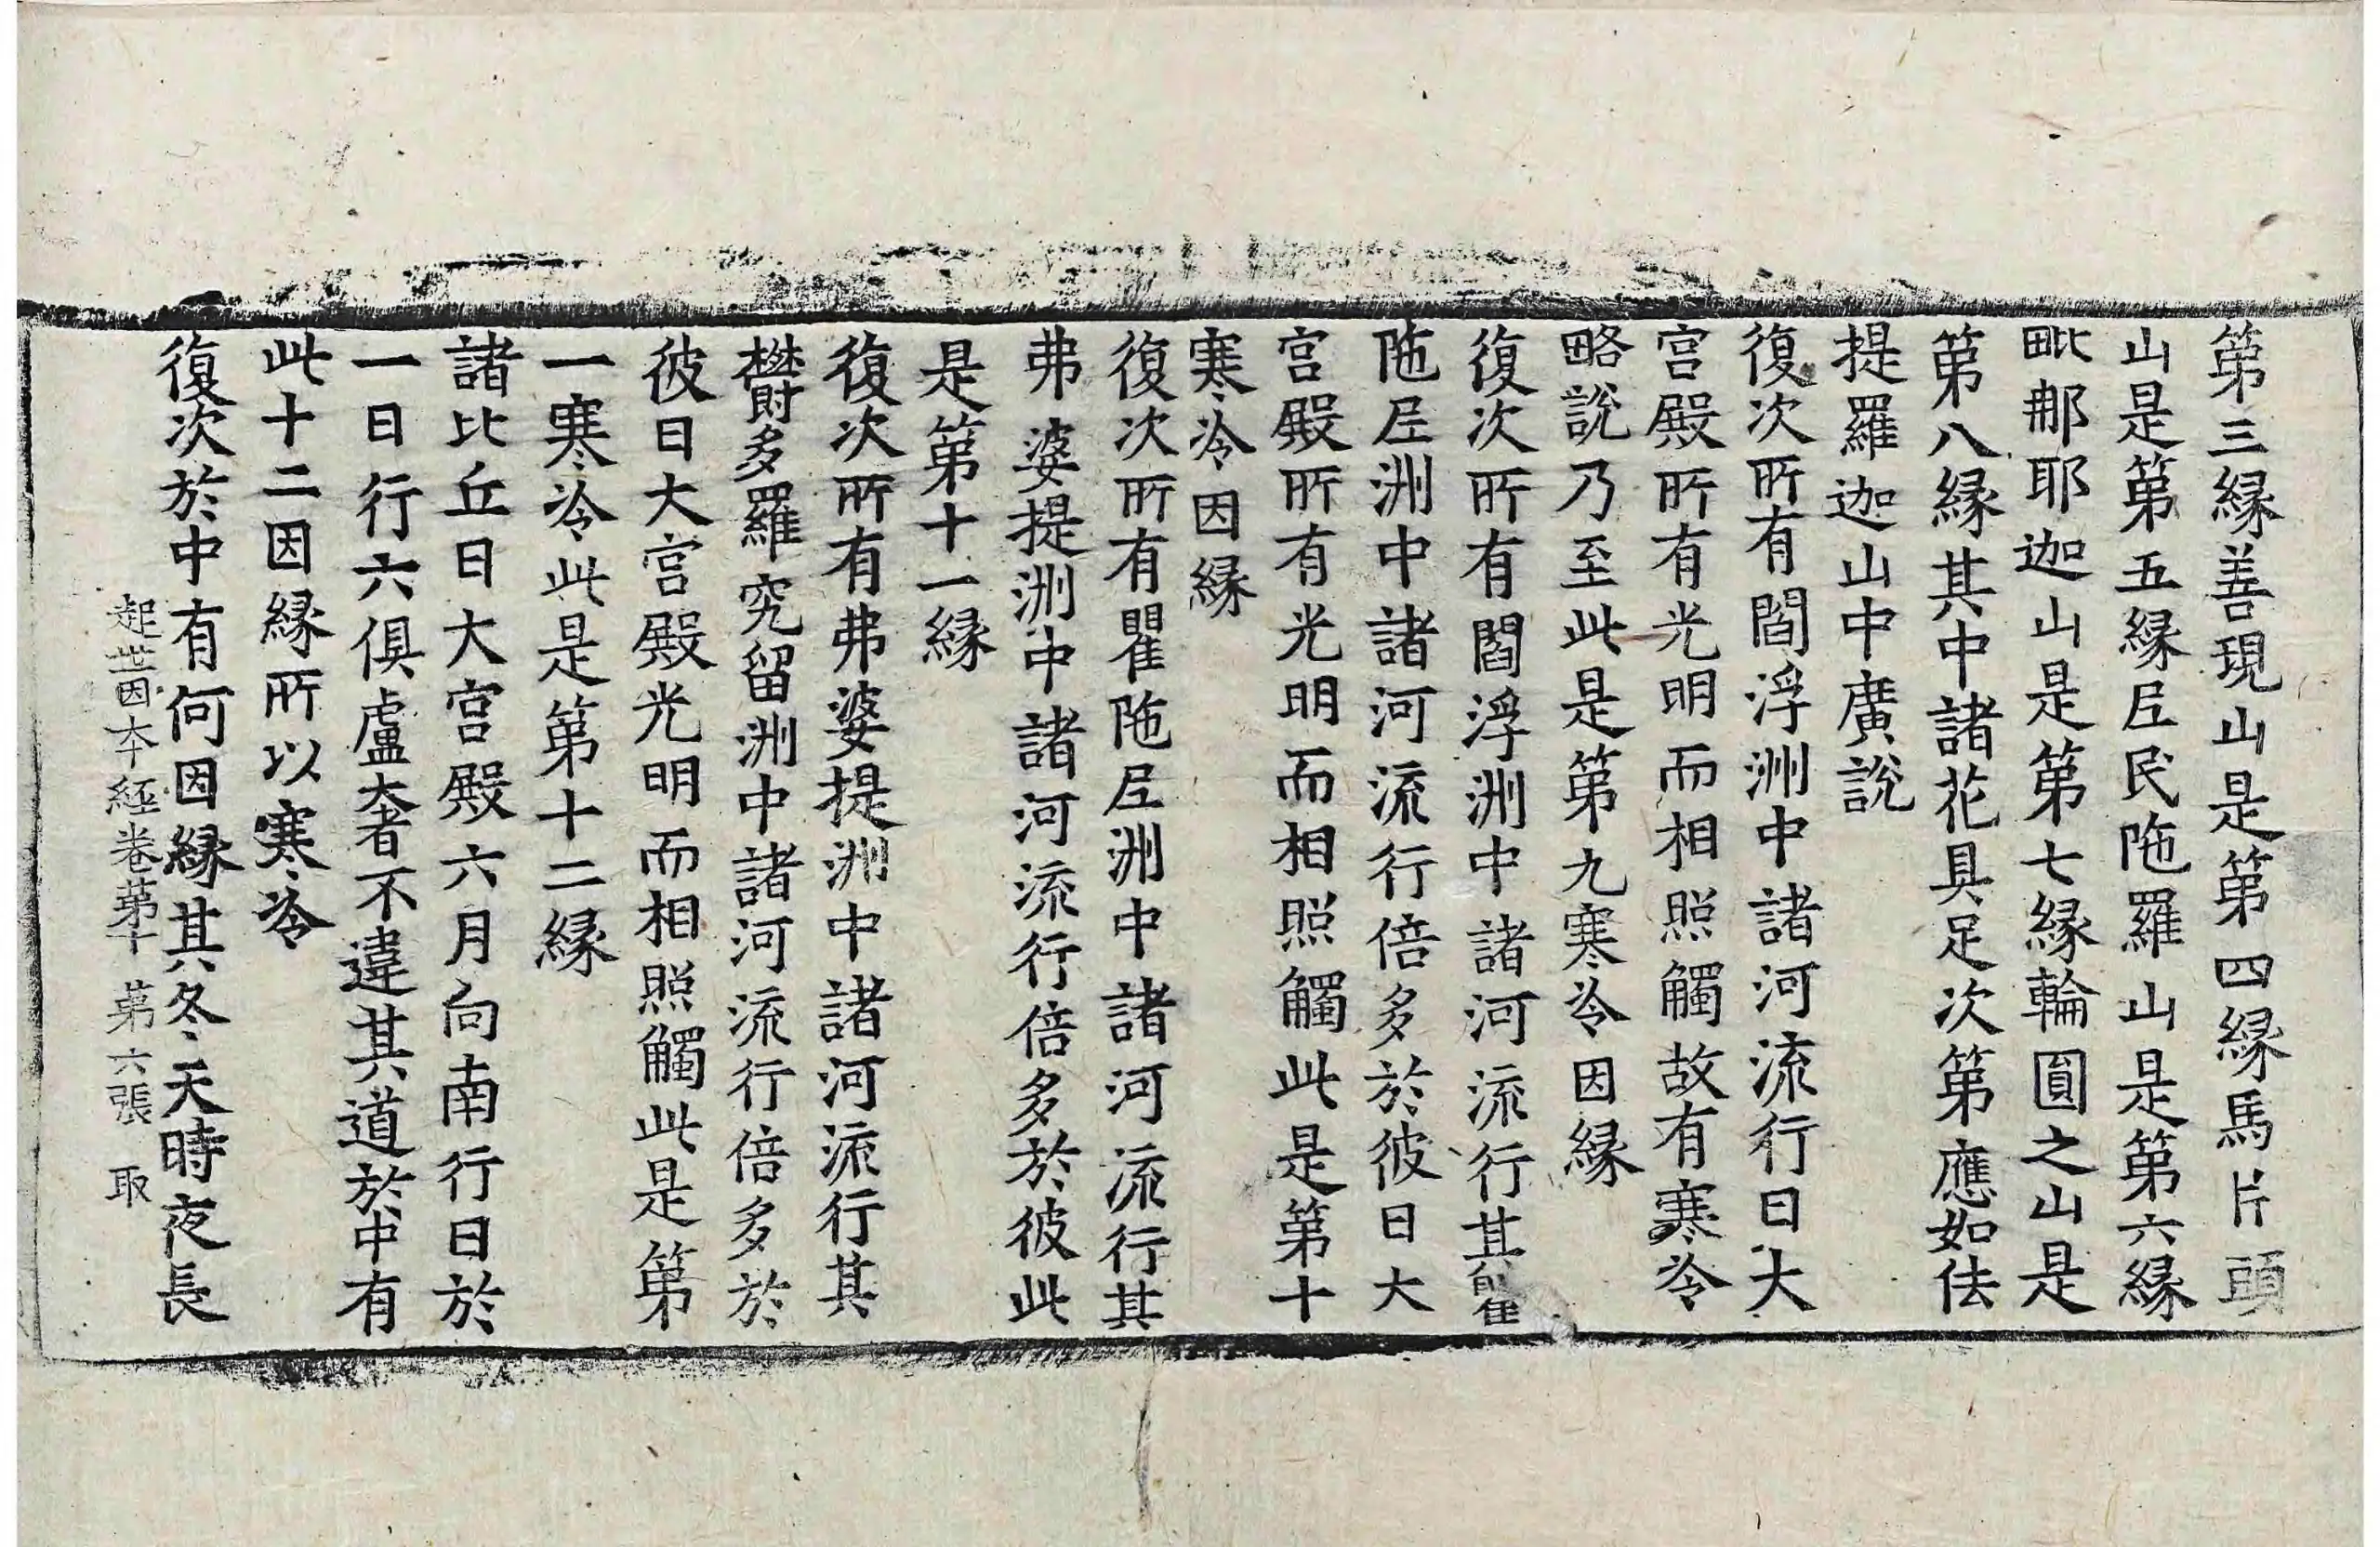 第三縁善現山是第四縁馬片頭
山是第五縁尼民陁羅山是第六縁
毗那耶迦山是第七縁輪圓之山是
第八縁其中諸花具足次第應如佉
提羅迦山中廣說
復次所有閻浮洲中諸河流行日大
宮殿所有光明而相照觸故有寒冷
略說乃至此是第九寒冷因縁
復次所有閻浮洲中諸河流行其瞿
陁尼洲中諸河流行倍多於彼日大
宮殿所有光明而相照觸此是第十
寒冷因縁
復次所有瞿陁尼洲中諸河流行其
弗婆提洲中諸河流行倍多於彼此
是第十一縁
復次所有弗婆提洲中諸河流行其
欝多羅究留洲中諸河流行倍多於
彼日大宮殿光明而相照觸此是第
一寒冷此是第十二縁
諸比丘日大宮殿六月向南行日於
一日行六俱盧奢不違其道於中有
此十二因縁所以寒冷
復次於中有何因縁其冬天時夜長
起世因本經卷第十 第六張 取